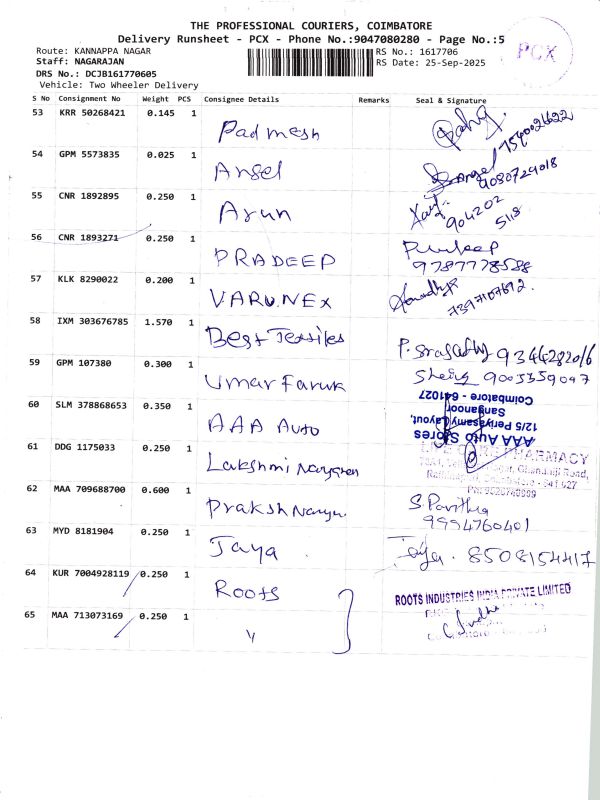 THE PROFESSIONAL COURIERS, COIMBATORE
Delivery Runsheet - PCX - Phone No.:9047080280 - Page No.:5
PCX
Route: KANNAPPA NAGAR
RS No.: 1617706
Staff: NAGARAJAN
RS Date: 25-Sep-2025
DRS No.: DCJB161770605
Vehicle: Two Wheeler Delivery
S No Consignment No Weight PCS Consignee Details Remarks Seal & Signature
53 KRR 50268421 0.145 1 Padmesh
54 GPM 5573835 0.025 1 Angel Angel
9080729018
55 CNR 1892895 0.250 1 Arun
904202
5118
56 CNR 1893271 0.250 1 PRADEEP Pradeep
9787778588
57 KLK 8290022 0.200 1 VARUNEX
7397107692.
58 IXM 303676785 1.570 1 Best Textiles
59 GPM 107380 0.300 1 Umar Faruk 9003359097
60 SLM 378868653 0.350 1 AAA Auto
AAA Auto Stores
12/5 Periyasamy Layout,
Sanganoor
Coimbatore - 641027
61 DDG 1175033 0.250 1 Lakshmi Narayanan
PHARMACY
62 MAA 709688700 0.600 1 Praksh S. Pavithra
9994760401
63 MYD 8181904 0.250 1 Jaya Jaya. 8508154417
64 KUR 7004928119 0.250 1 Roots
ROOTS INDUSTRIES INDIA PRIVATE LIMITED
65 MAA 713073169 0.250 1 "